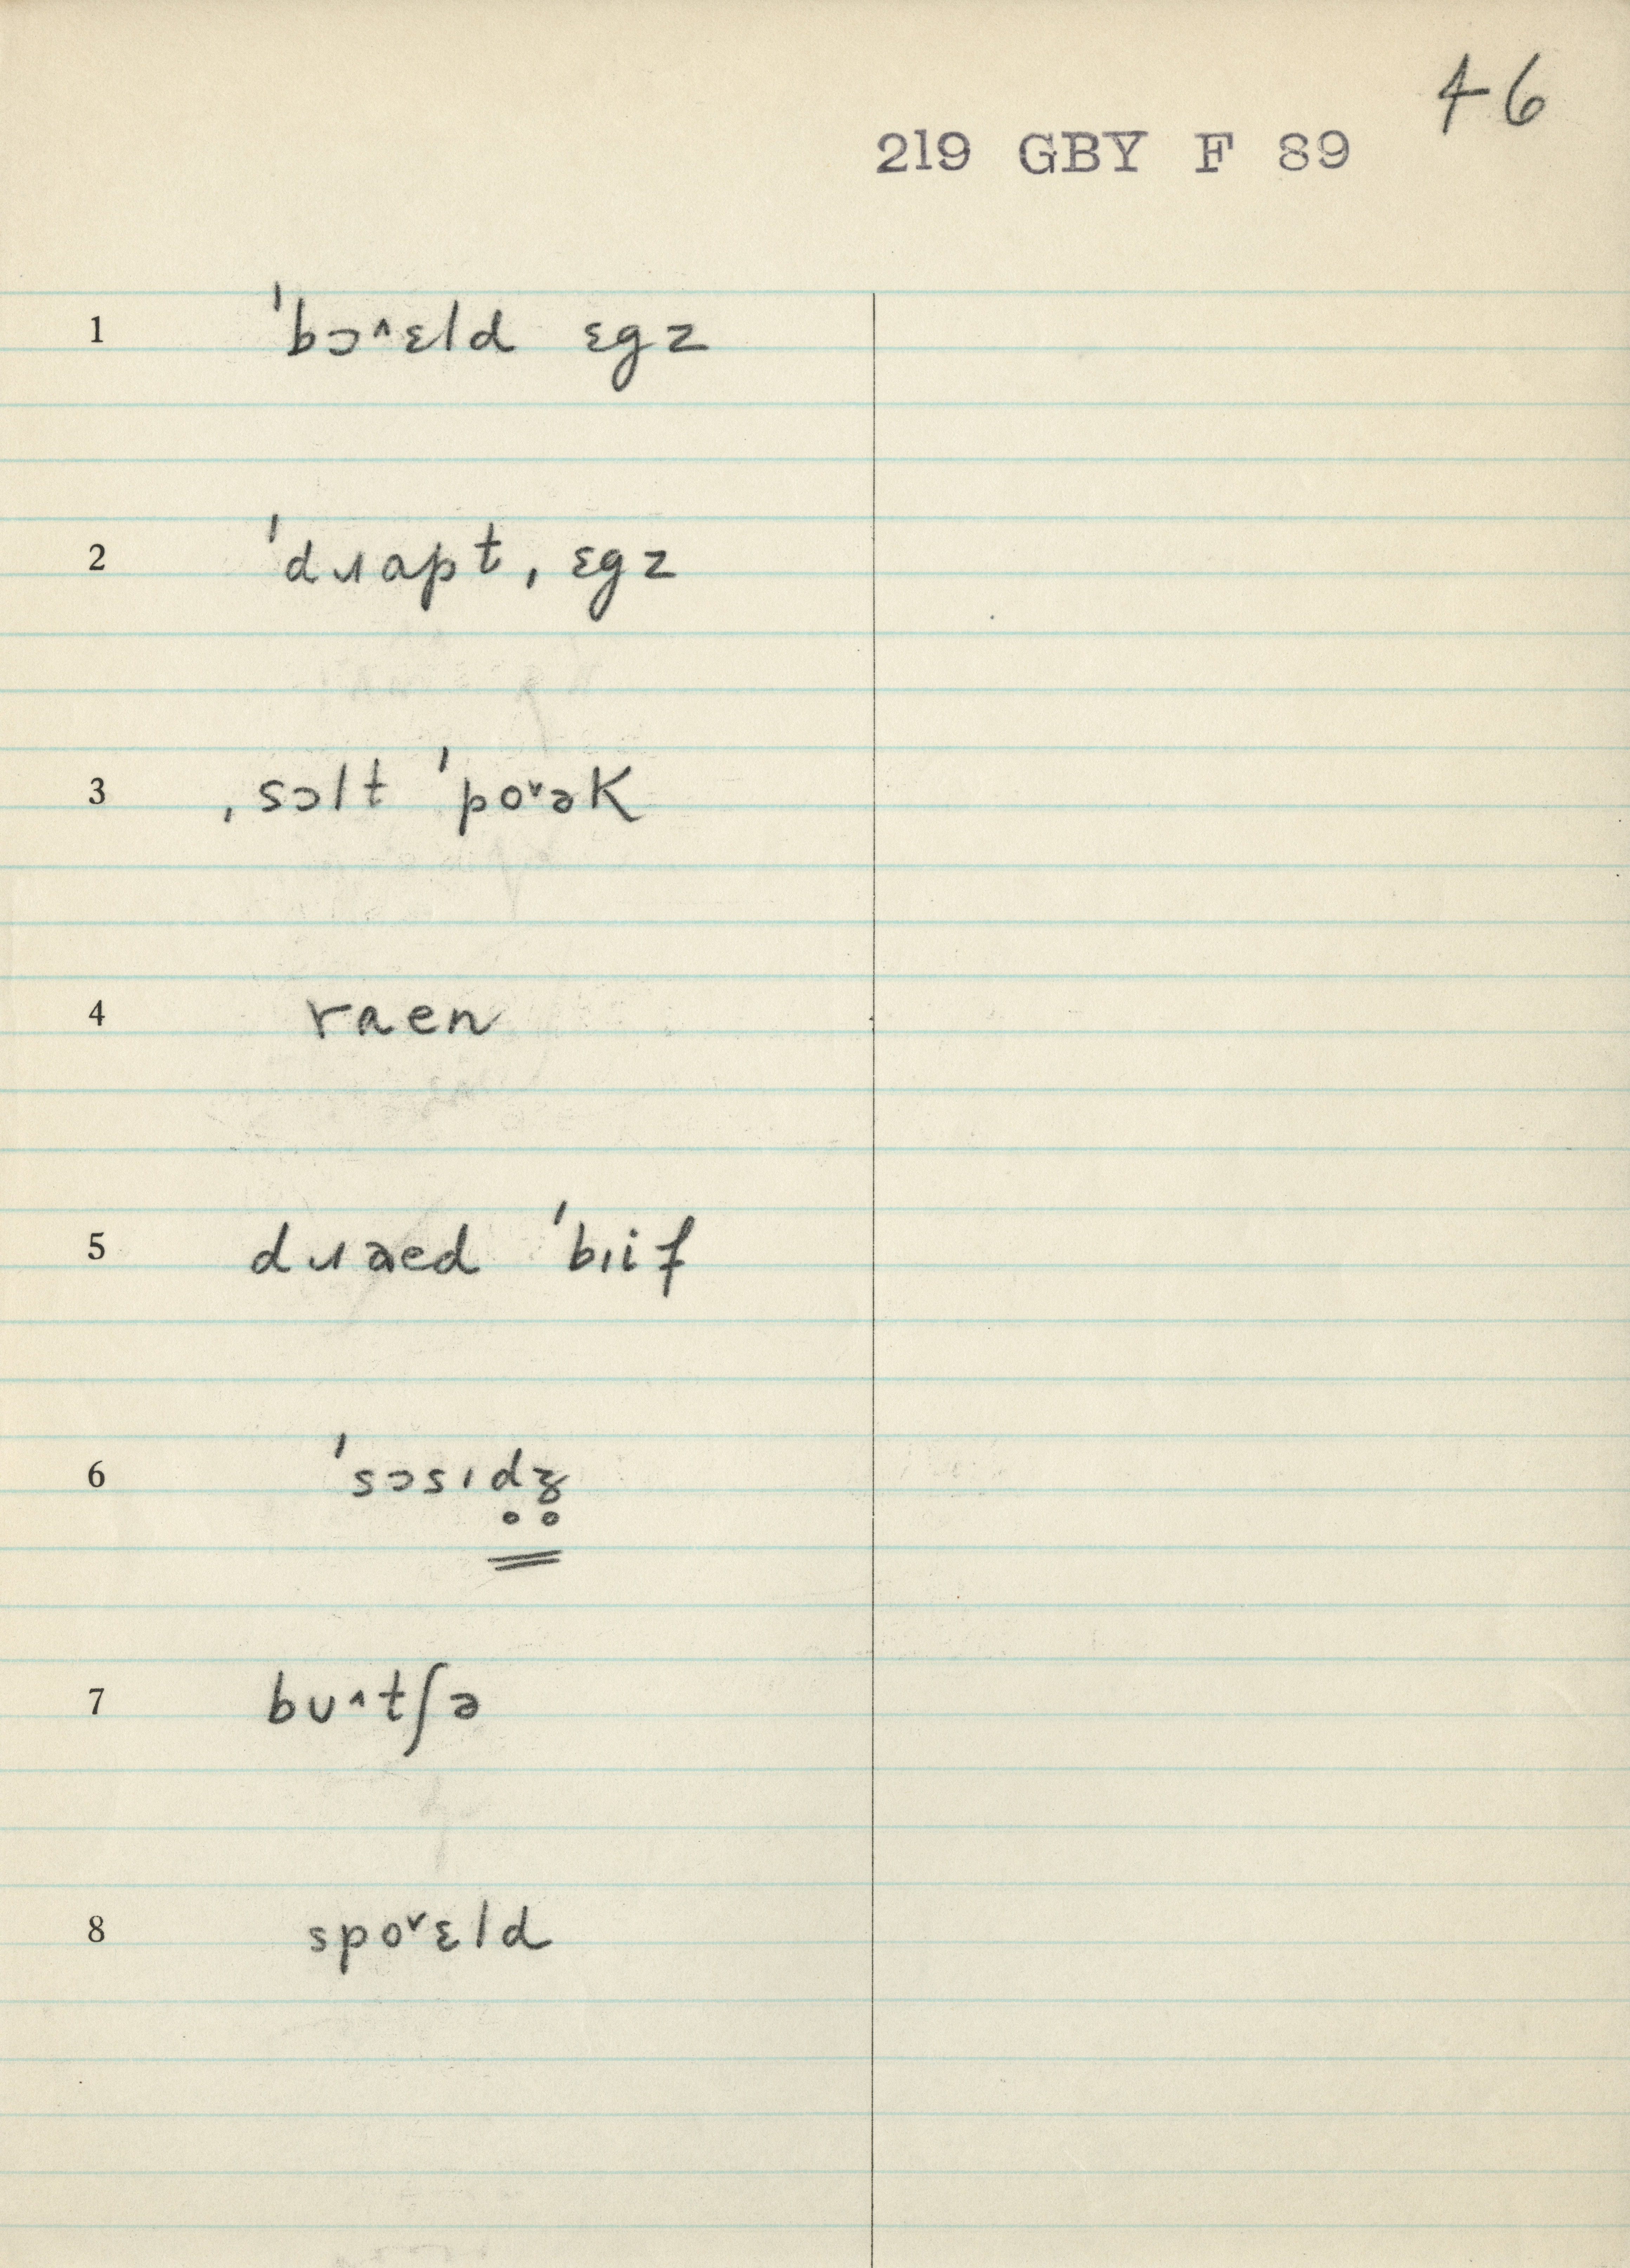 46
219 GBY F 89
1 ˈbɔ˄ɛld ɛgz
2 ˈdɹapt ˌɛgz
3 ˌsɔlt ˈpo˅ək
4 raen
5 dɹaed ˈbɪif
6 ˈsɔsɪd̥ʒ̥
7 bʊ˄tʃə
8 spo˅ɛld